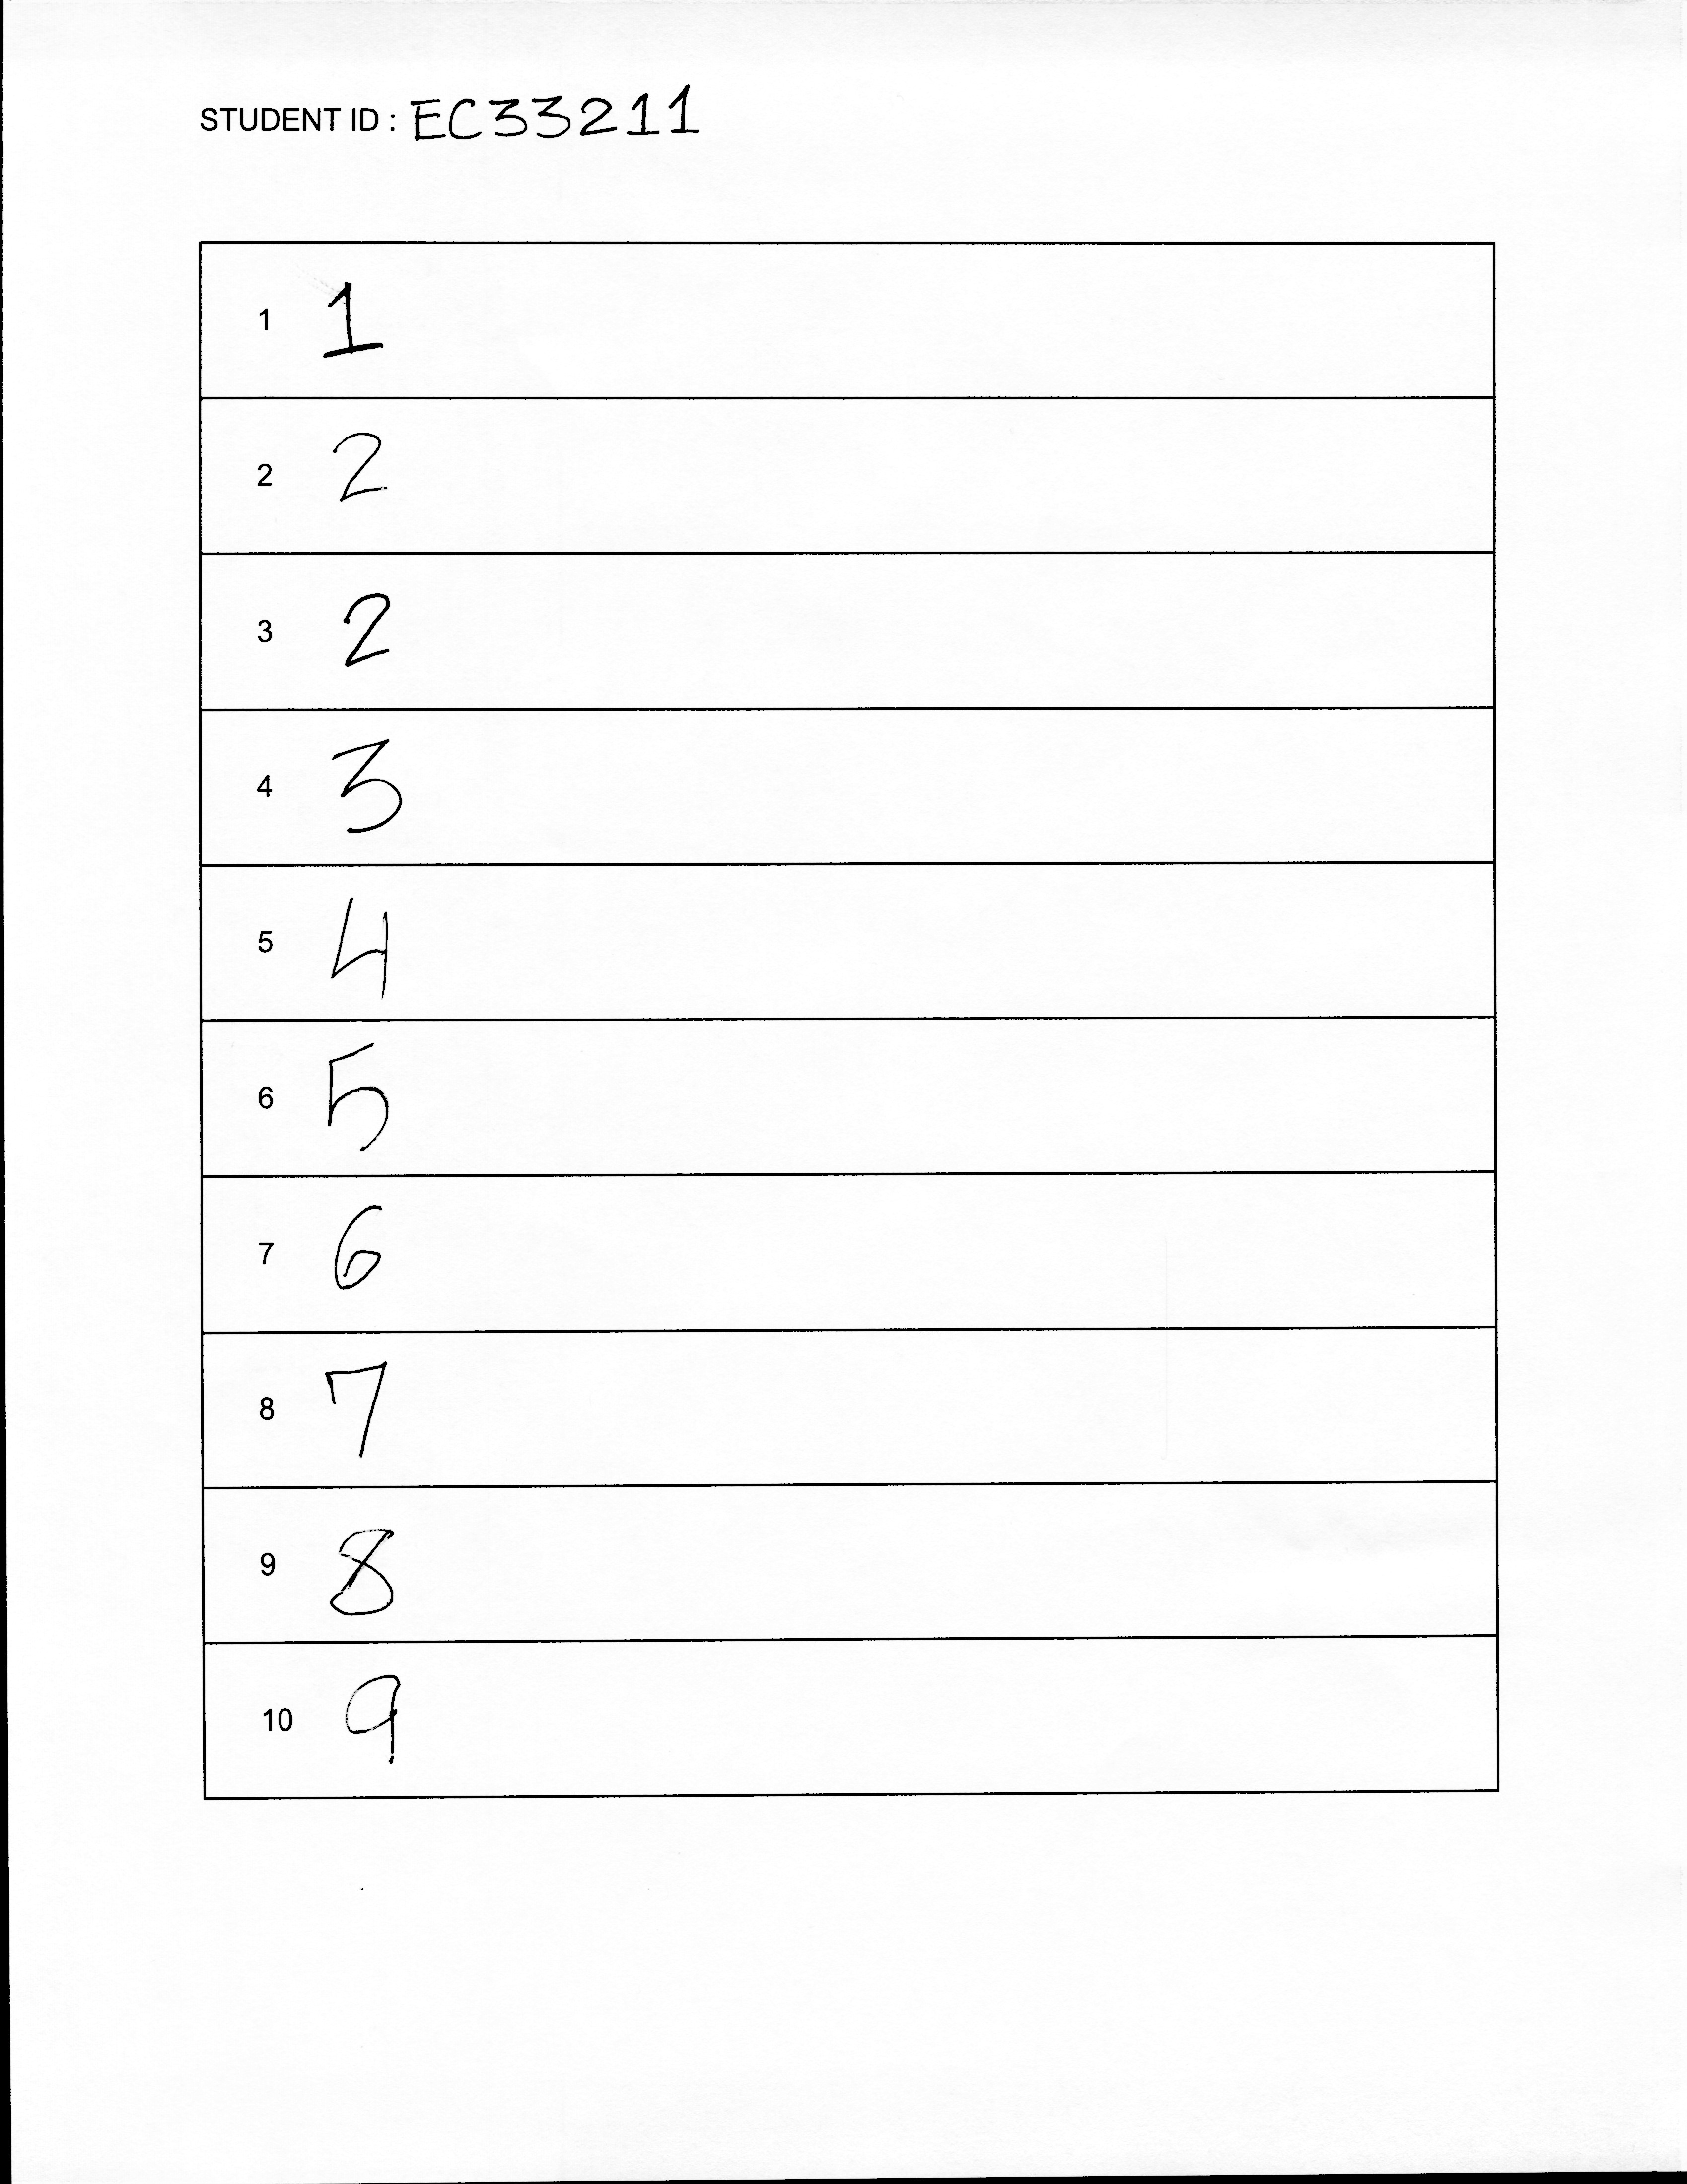 STUDENT ID : EC33211
1 1
2 2
3 2
4 3
5 4
6 5
7 6
8 7
9 8
10 9